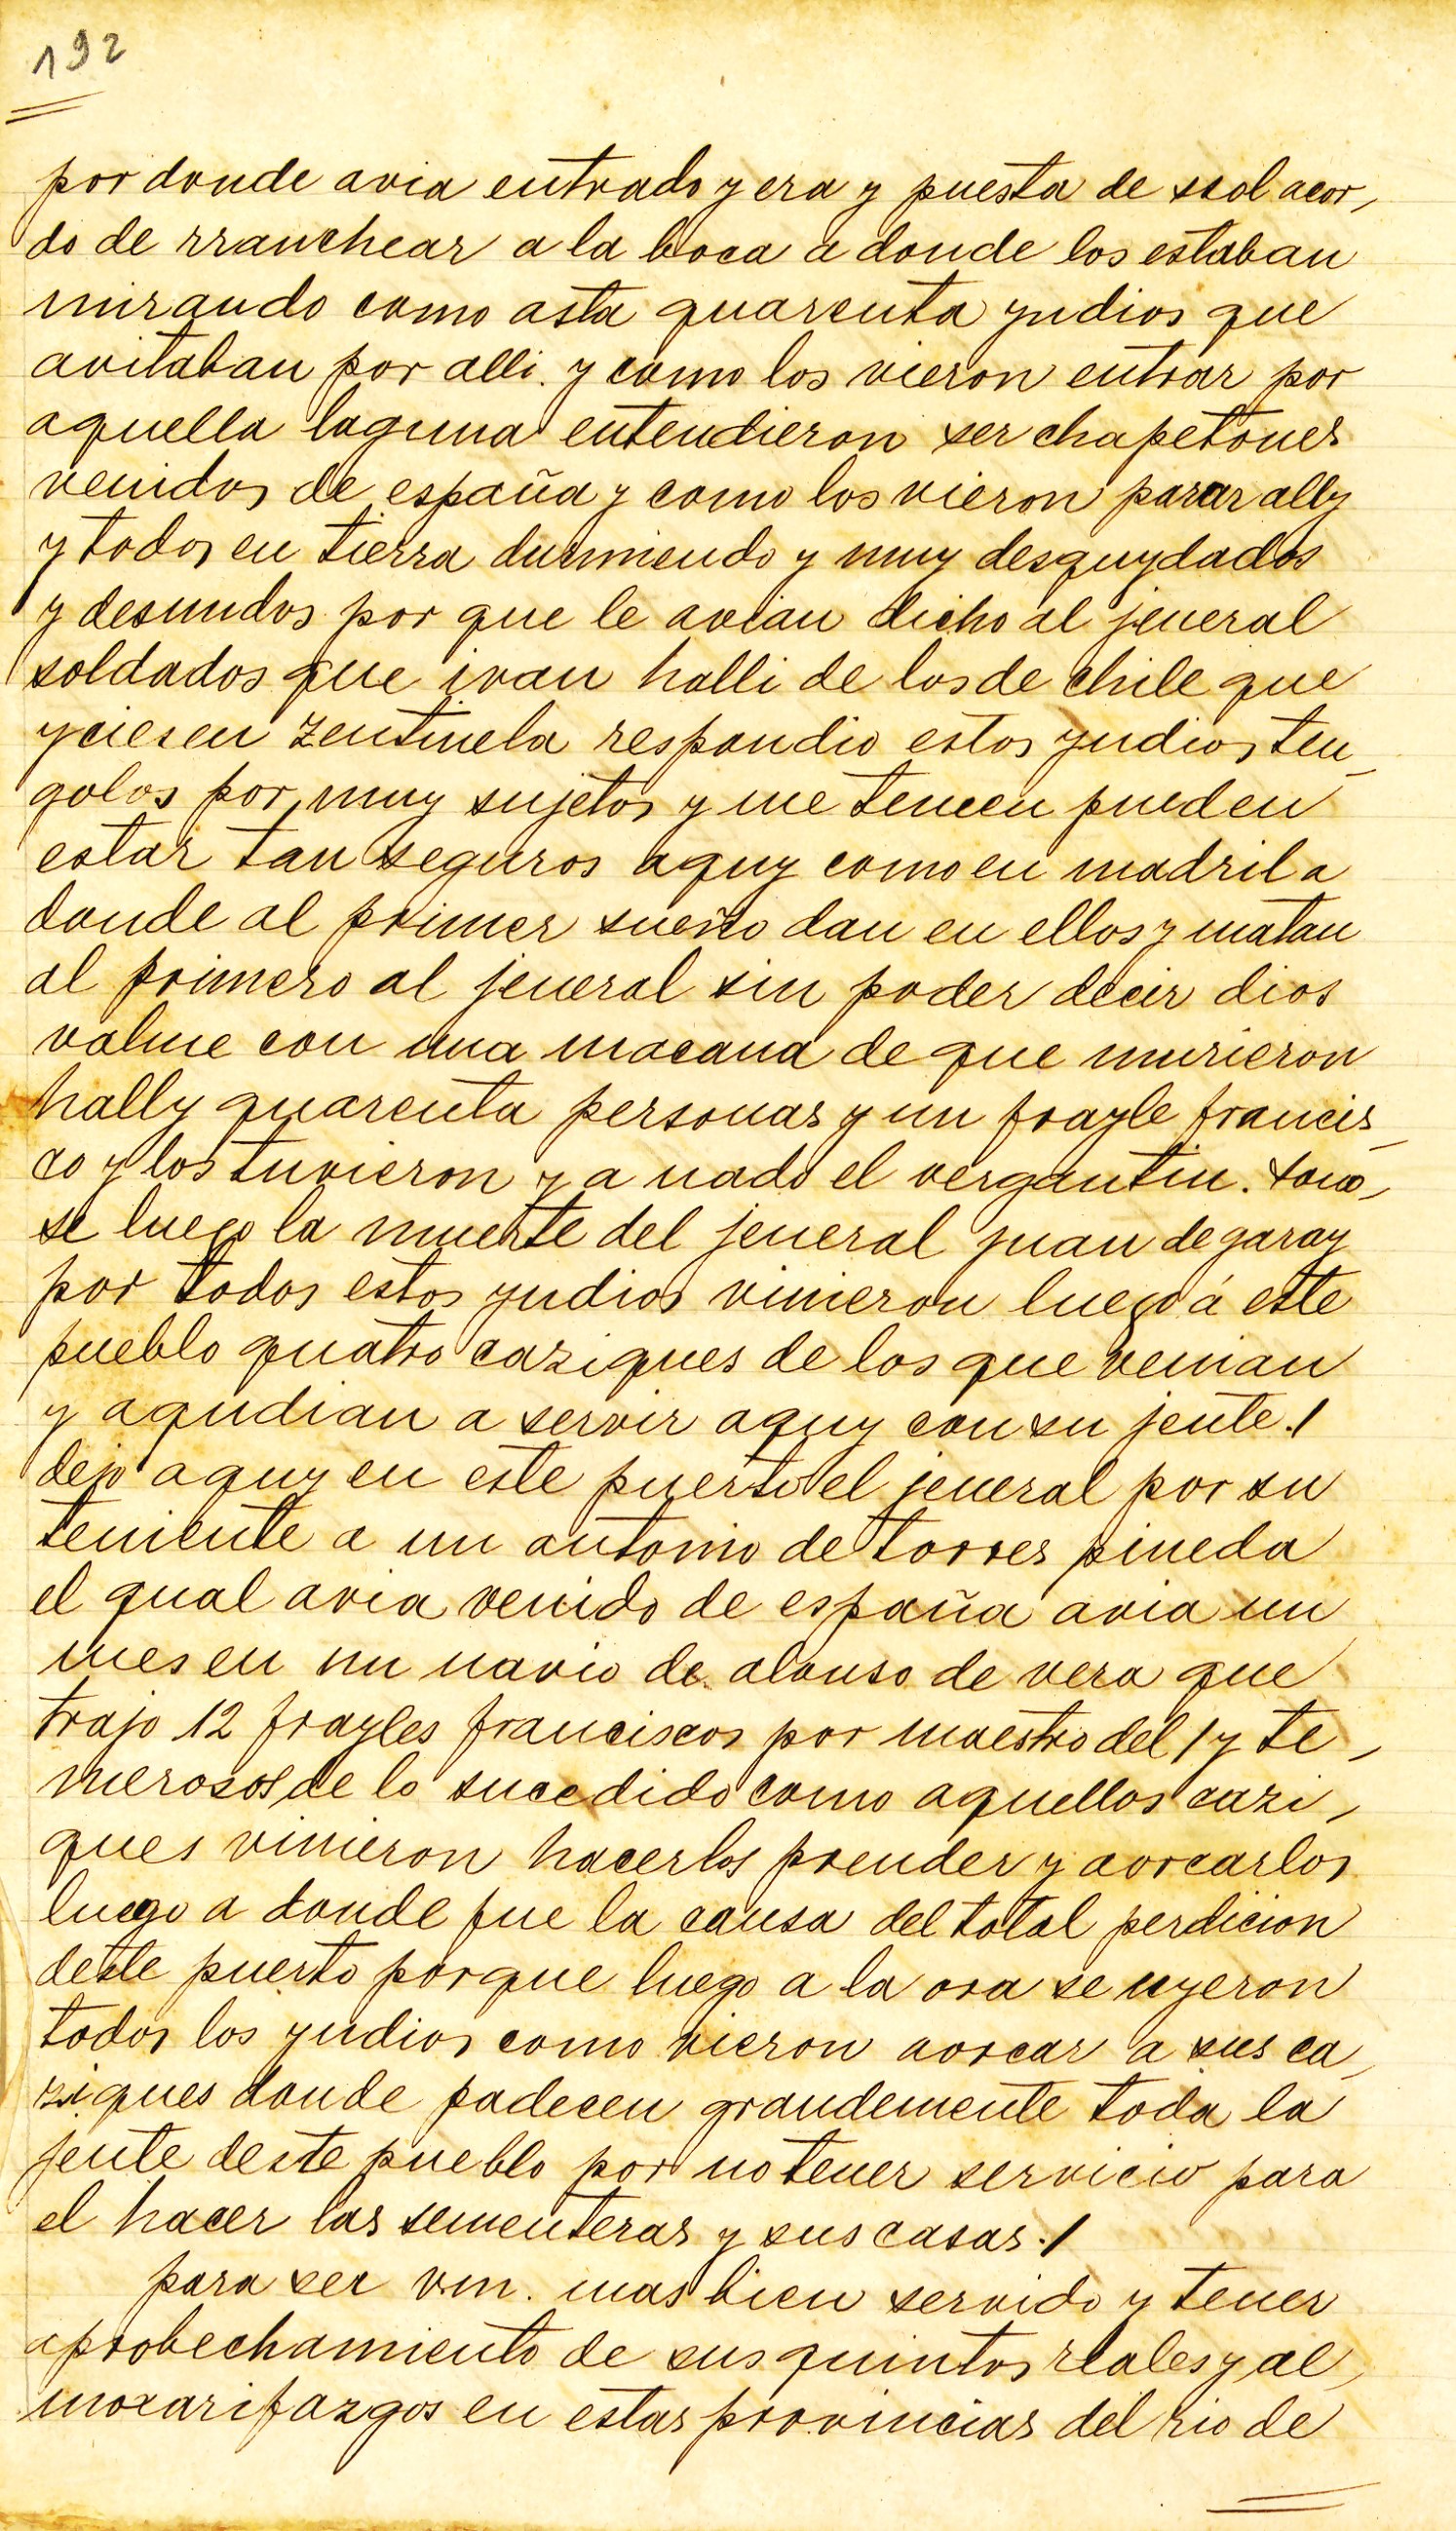 192
por donde avia entrado y era y puesta de ssol acor,
do de rranchear a la boca a donde los estaban
mirando como asta quarenta yndios que
avitaban por alli. y como los vieron entrar por
aquella laguna entendieron ser chapetones
venidos de españa y como los vieron parar ally
y todos en tierra durmiendo y muy desquydados
y desnudos por que le avian dicho al jeneral
soldados que ivan halli de los de chile que
yciesen zentinela respondio estos yndios ten_
golos por muy sujetos y me temen pueden
estar tan seguros aquy como en madril a
donde al primer sueño dan en ellos y matan
al primero al jeneral sin poder decir dios
valme con una macana de que murieron
hally quarenta personas y un frayle francis_
co y los tuvieron ya nado el vergantin.
se luego la muerte del jeneral juan de garay
por todos estos yndios vinieron luego á este
pueblo quatro caziques de los que venian
y aqudian a servir aquy con su jente./
dejo aquy en este puerto el jeneral por su
teniente a un antonio de torres pineda
el qual avia venido de españa avia un
mes en un navio de alonso de vera que
trajo 12 frayles franciscos por maestro del / y te,
merosos de lo sucedido como aquellos cazi,
ques vinieron hacerlos prender y aorcarlos
luego a donde fue la causa del total perdicion
deste puerto porque luego a la ora se uyeron
todos los yndios como vieron aorcar a sus ca,
ziques donde padecen grandemente toda la
jente deste pueblo por no tener servicio para
el hacer las sementeras y sus casas./
para ser vm. mas bien servido y tener
aprobechamiento de sus quintos reales y al,
moxarifazgos en estas provincias del rio de